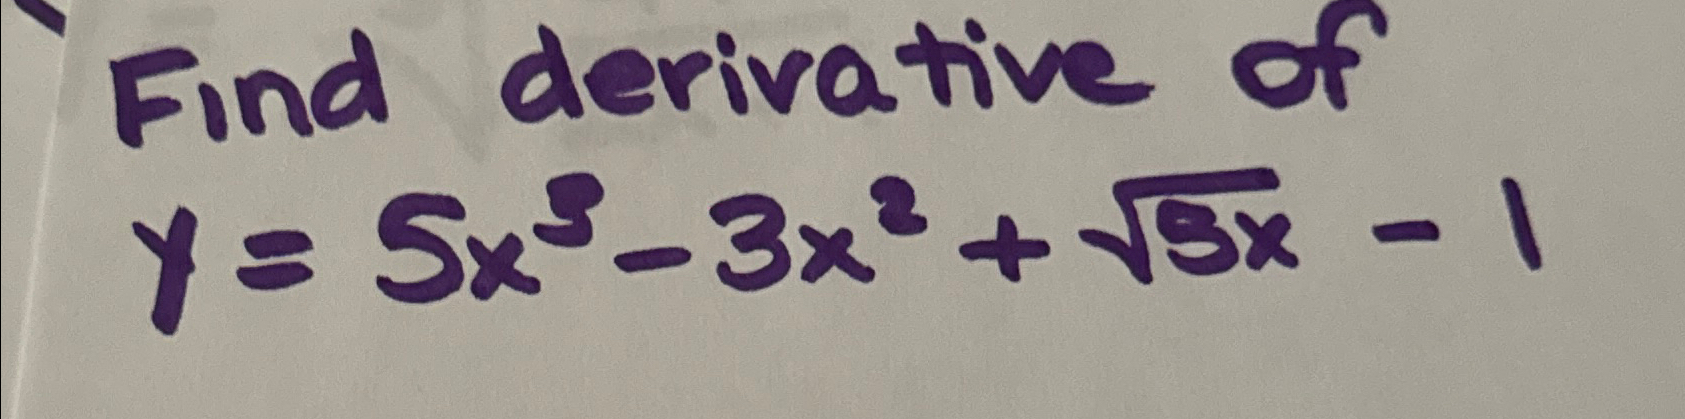 Find derivative of
y = 5x³ - 3x² + √5x - 1